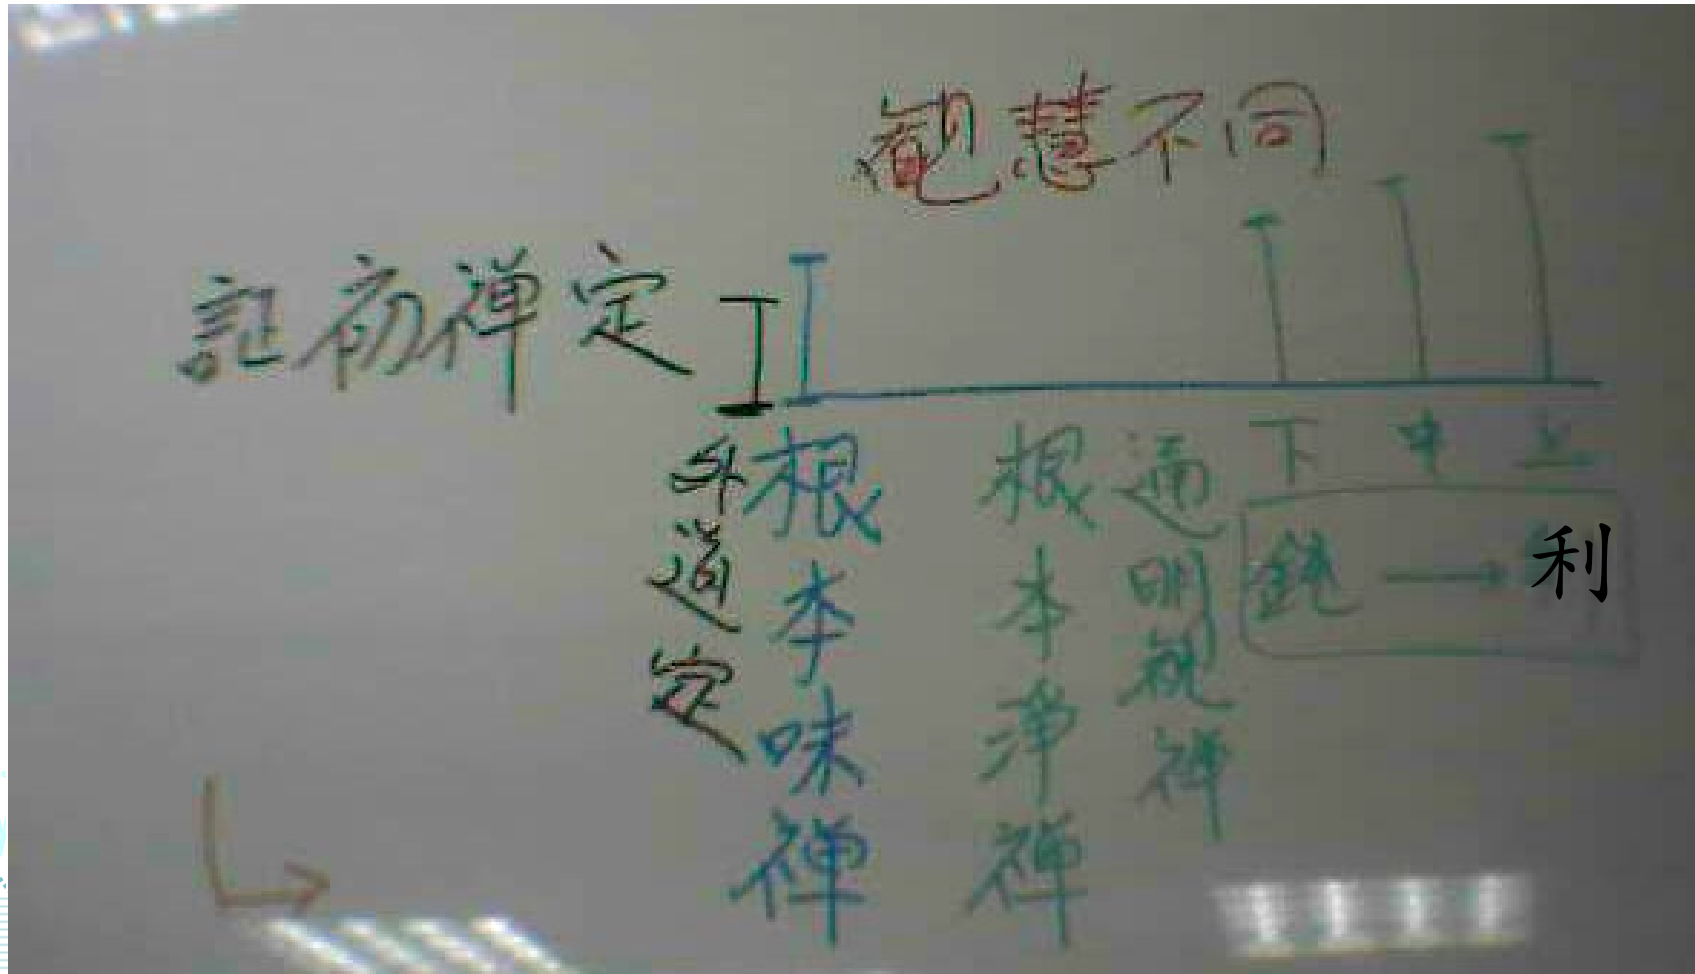 觀慧不同
証初禅定
外道定
根本味禅
根本淨禅
通明觀禅
下 中 上
鈍 → 利